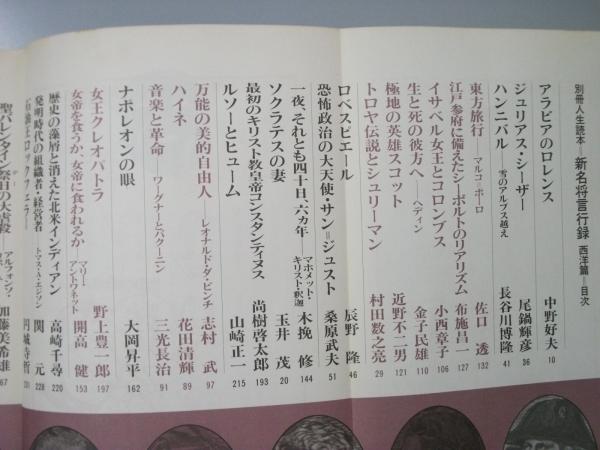 別冊人生読本―新名将言行録 西洋篇―目次
アラビアのロレンス 中野好夫 10
ジュリアス・シーザー 尾鍋輝彦 36
ハンニバル―雪のアルプス越え 長谷川博隆 41
東方旅行―マルコ=ポーロ 佐口 透 132
江戸参府に備えたシーボルトのリアリズム 布施昌一 127
イサベル女王とコロンブス 小西章子 106
生と死の彼方へ―ヘディン 金子民雄 110
極地の英雄スコット 近野不二男 121
トロヤ伝説とシュリーマン 村田数之亮 29
ロベスピエール 辰野 隆 46
恐怖政治の大天使・サン=ジュスト 桑原武夫 51
一夜、それとも四十日、六ヵ年―マホメット・キリスト・釈迦 木挽 修 144
ソクラテスの妻 玉井 茂 20
最初のキリスト教皇帝コンスタンティヌス 尚樹啓太郎 193
ルソーとヒューム 山崎正一 215
万能の美的自由人―レオナルド・ダ・ビンチ 志村 武 97
ハイネ 花田清輝 89
音楽と革命―ワーグナーとバクーニン 三光長治 91
ナポレオンの眼 大岡昇平 162
女王クレオパトラ 野上豊一郎 197
女帝を食うか、女帝に食われるか―マリー・アントワネット 開高 健 153
歴史の藻屑と消えた北米インディアン 高崎千尋 220
発明時代の組織者・経営者―トマス・A・エジソン 関 元 228
ロックフェラー 円城寺哲
聖バレンタイン祭日の大虐殺―アルフォンソ・ 加藤美希雄 67